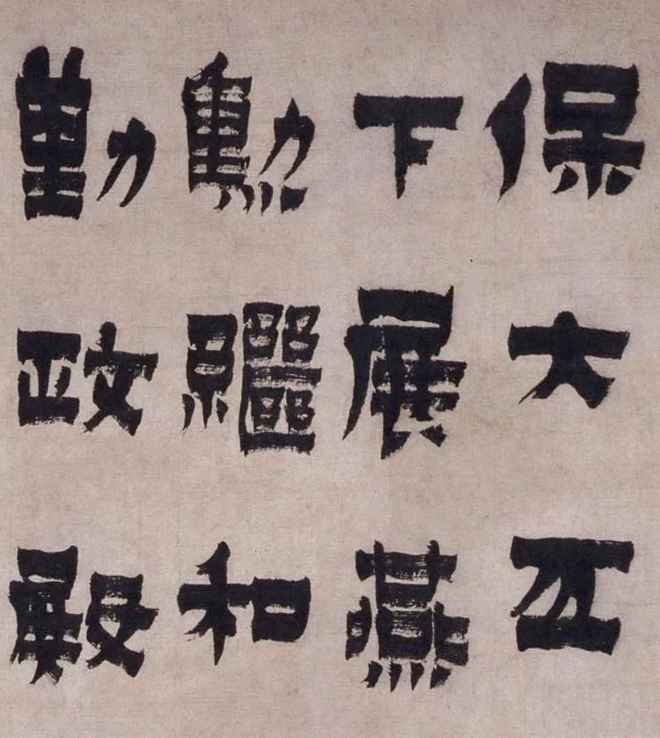 保大五
下展燕
勳繼和
勤政殿